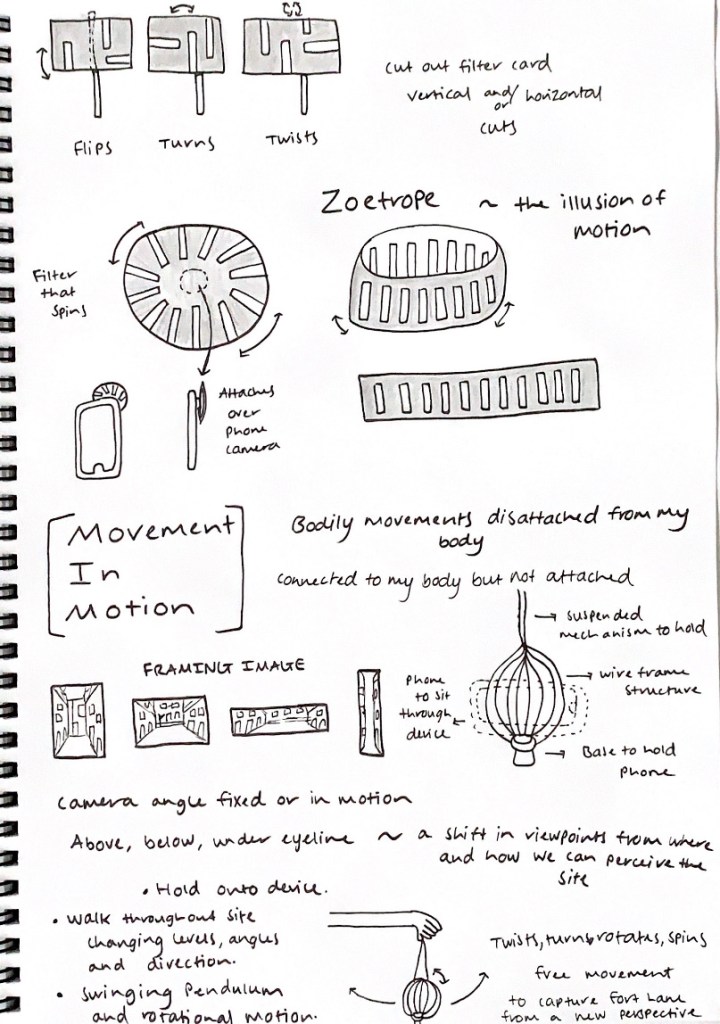 Flips
Turns
Twists
cut out filter card
vertical and/or horizontal
cuts
Zoetrope ~ the illusion of
motion
Filter
that
spins
Attaches
over
phone
camera
Movement
In
Motion
Bodily movements disattached from my
body
connected to my body but not attached
suspended
mechanism to hold
wire frame
structure
Base to hold
phone
Phone
to sit
through
device
FRAMING IMAGE
camera angle fixed or in motion
Above, below, under eyeline ~ a shift in viewpoints from where
and how we can perceive the
site
• Hold onto device.
• Walk throughout site
changing levels, angles
and direction.
• Swinging Pendulum
and rotational motion.
Twists, turns, rotates, spins
free movement
to capture Fort Lane
from a new perspective